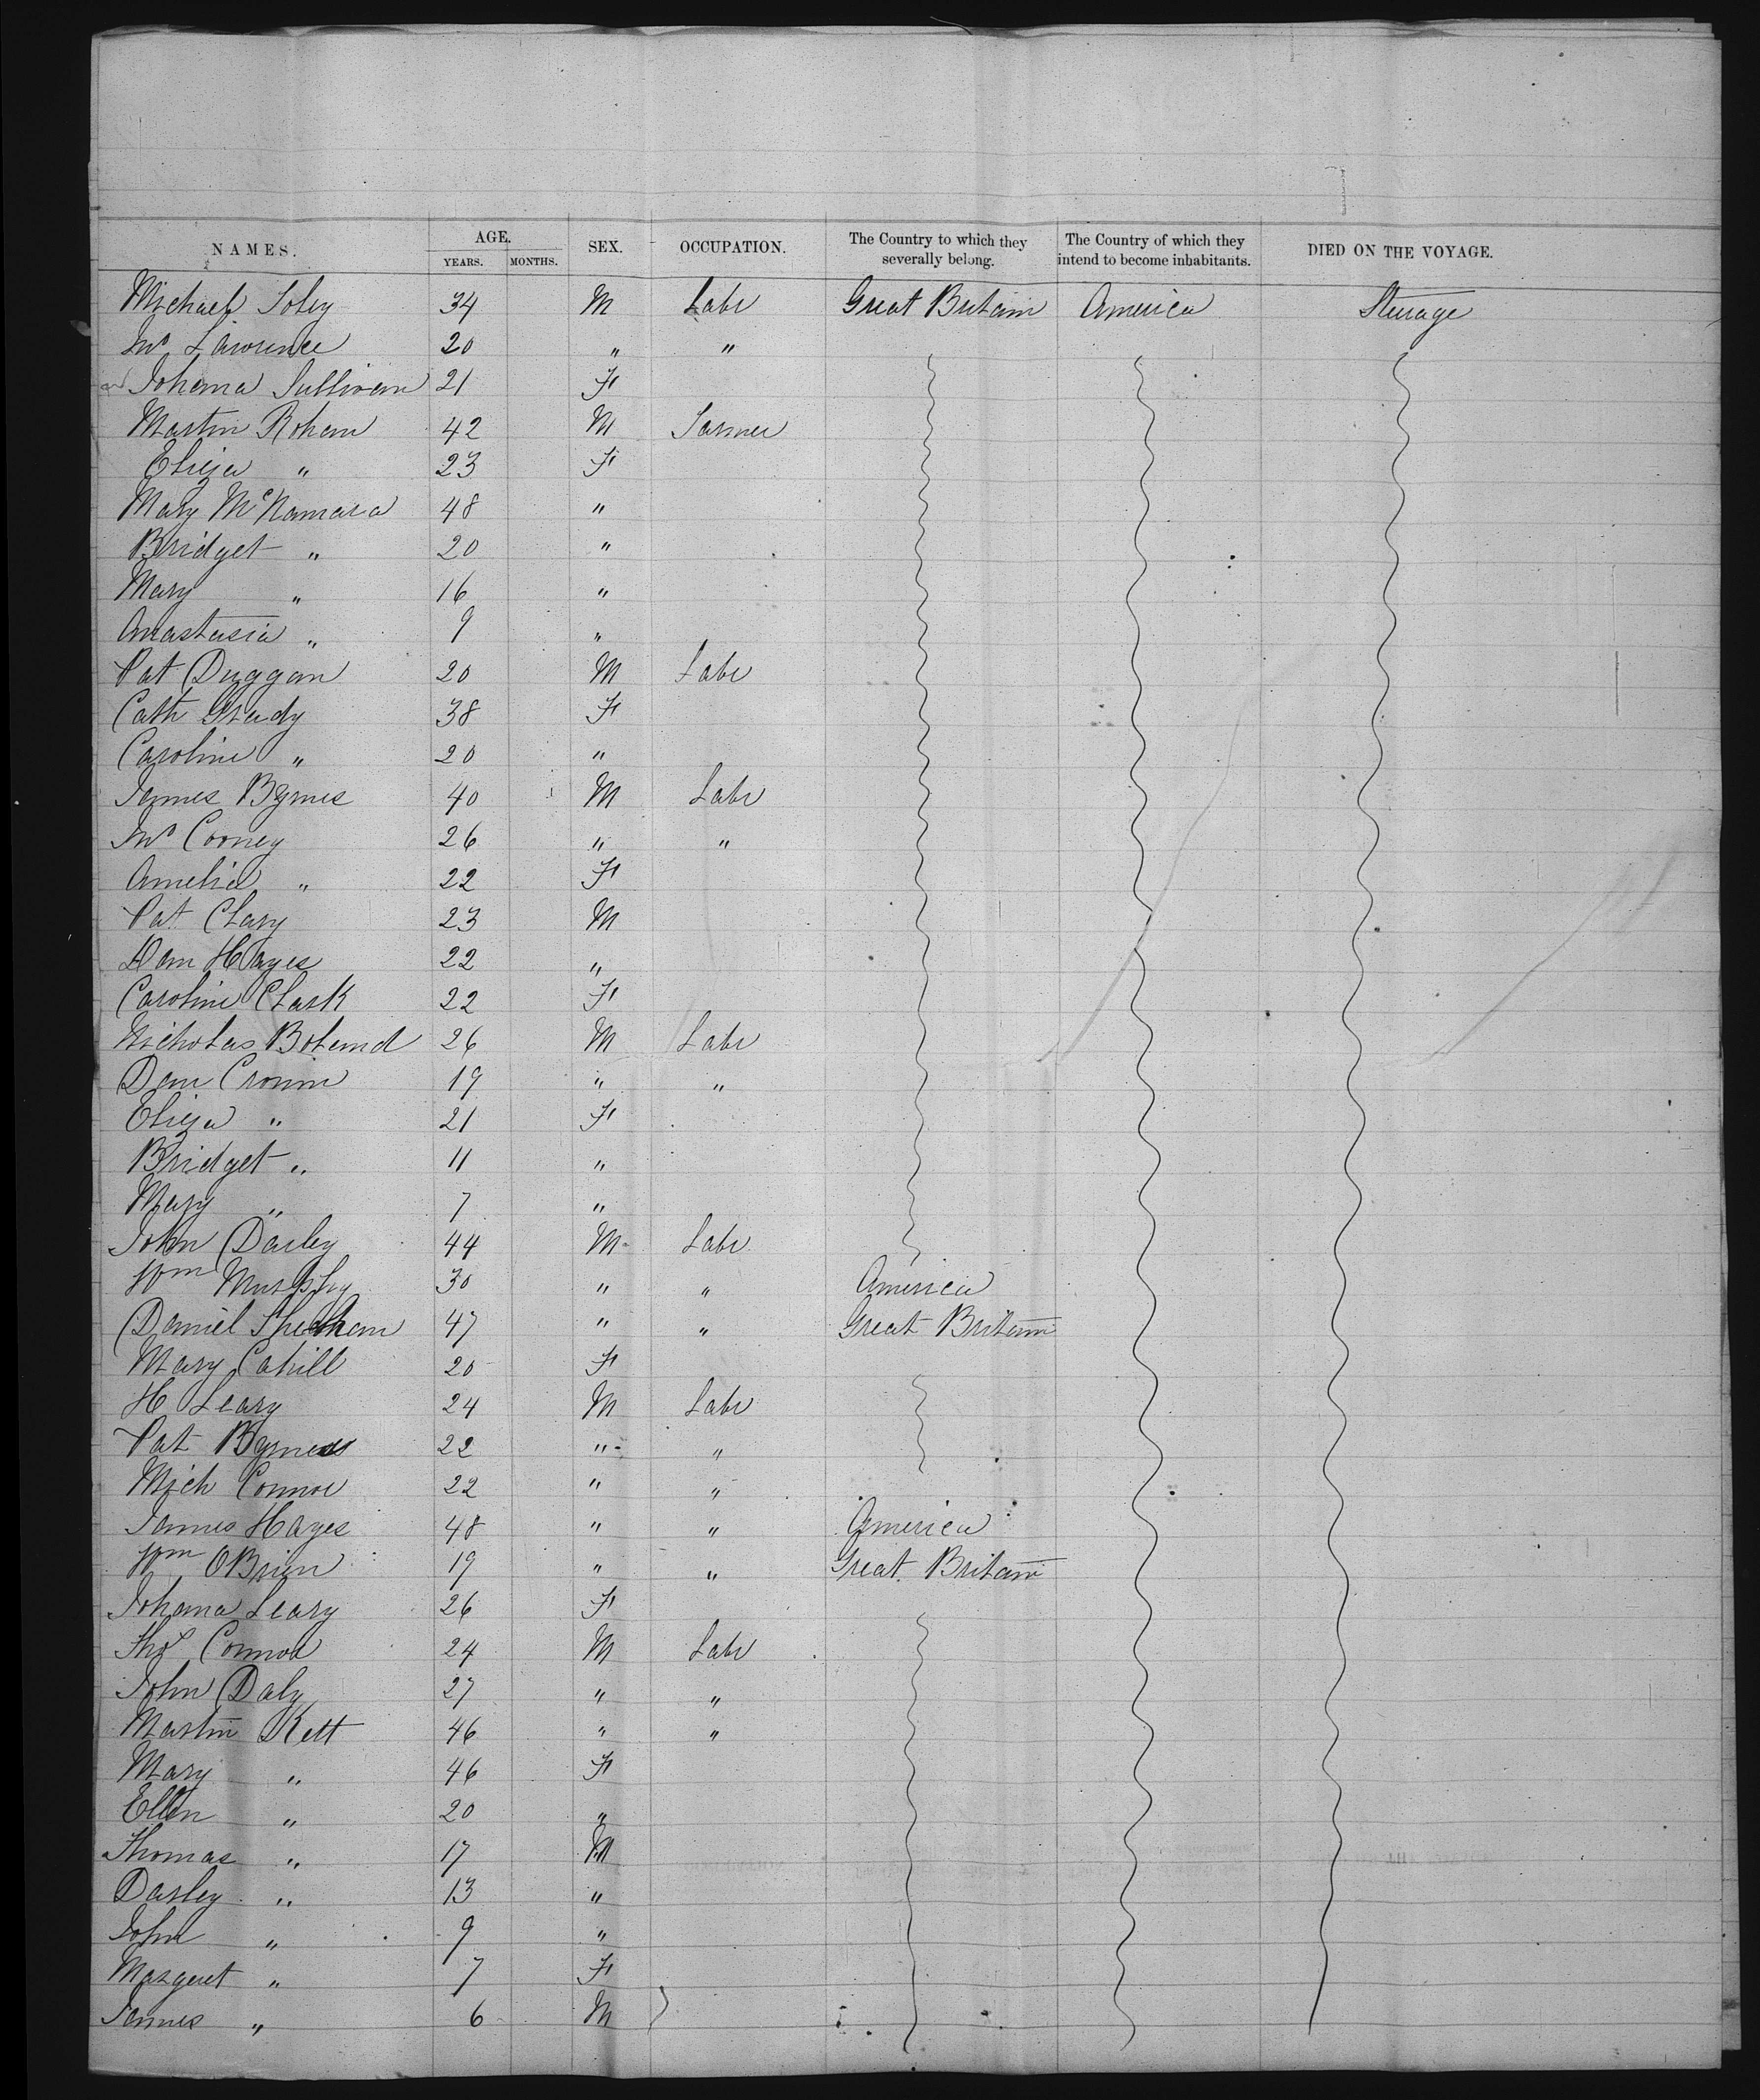 NAMES. AGE. SEX. OCCUPATION. The Country to which they severally belong. The Country of which they intend to become inhabitants. DIED ON THE VOYAGE.
YEARS. MONTHS.
Michael Foley 34 M Labr Great Britain America Steerage
Jno Lawrence 20 " "
Johana Sullivan 21 F
Martin Rohan 42 M Farmer
Eliza " 23 F
Mary McNamara 48 "
Bridget " 20 "
Mary " 16 "
Anastasia " 9 "
Pat Duggan 20 M Labr
Cath Grady 38 F
Caroline " 20 "
James Byrnes 40 M Labr
Jno Cooney 26 " "
Amelia " 22 F
Pat Clary 23 M
Dan Hayes 22 "
Caroline Clark 22 F
Nicholas Boland 26 M Labr
Dan Cronin 19 " "
Eliza " 21 F
Bridget " 11 "
Mary " 7 "
John Darley 44 M Labr
Wm Murphy 30 " " America
Daniel Sheehan 47 " " Great Britain
Mary Cahill 20 F
H Leary 24 M Labr
Pat Byrnes 22 " "
Mich Connor 22 " "
James Hayes 48 " " America
Wm OBrien 19 " " Great Britain
Johana Leary 26 F
Thos Connor 24 M Labr
John Daly 27 " "
Martin Kett 46 " "
Mary " 46 F
Ellen " 20 "
Thomas " 17 M
Darley " 13 "
John " 9 "
Margaret " 7 F
James " 6 M